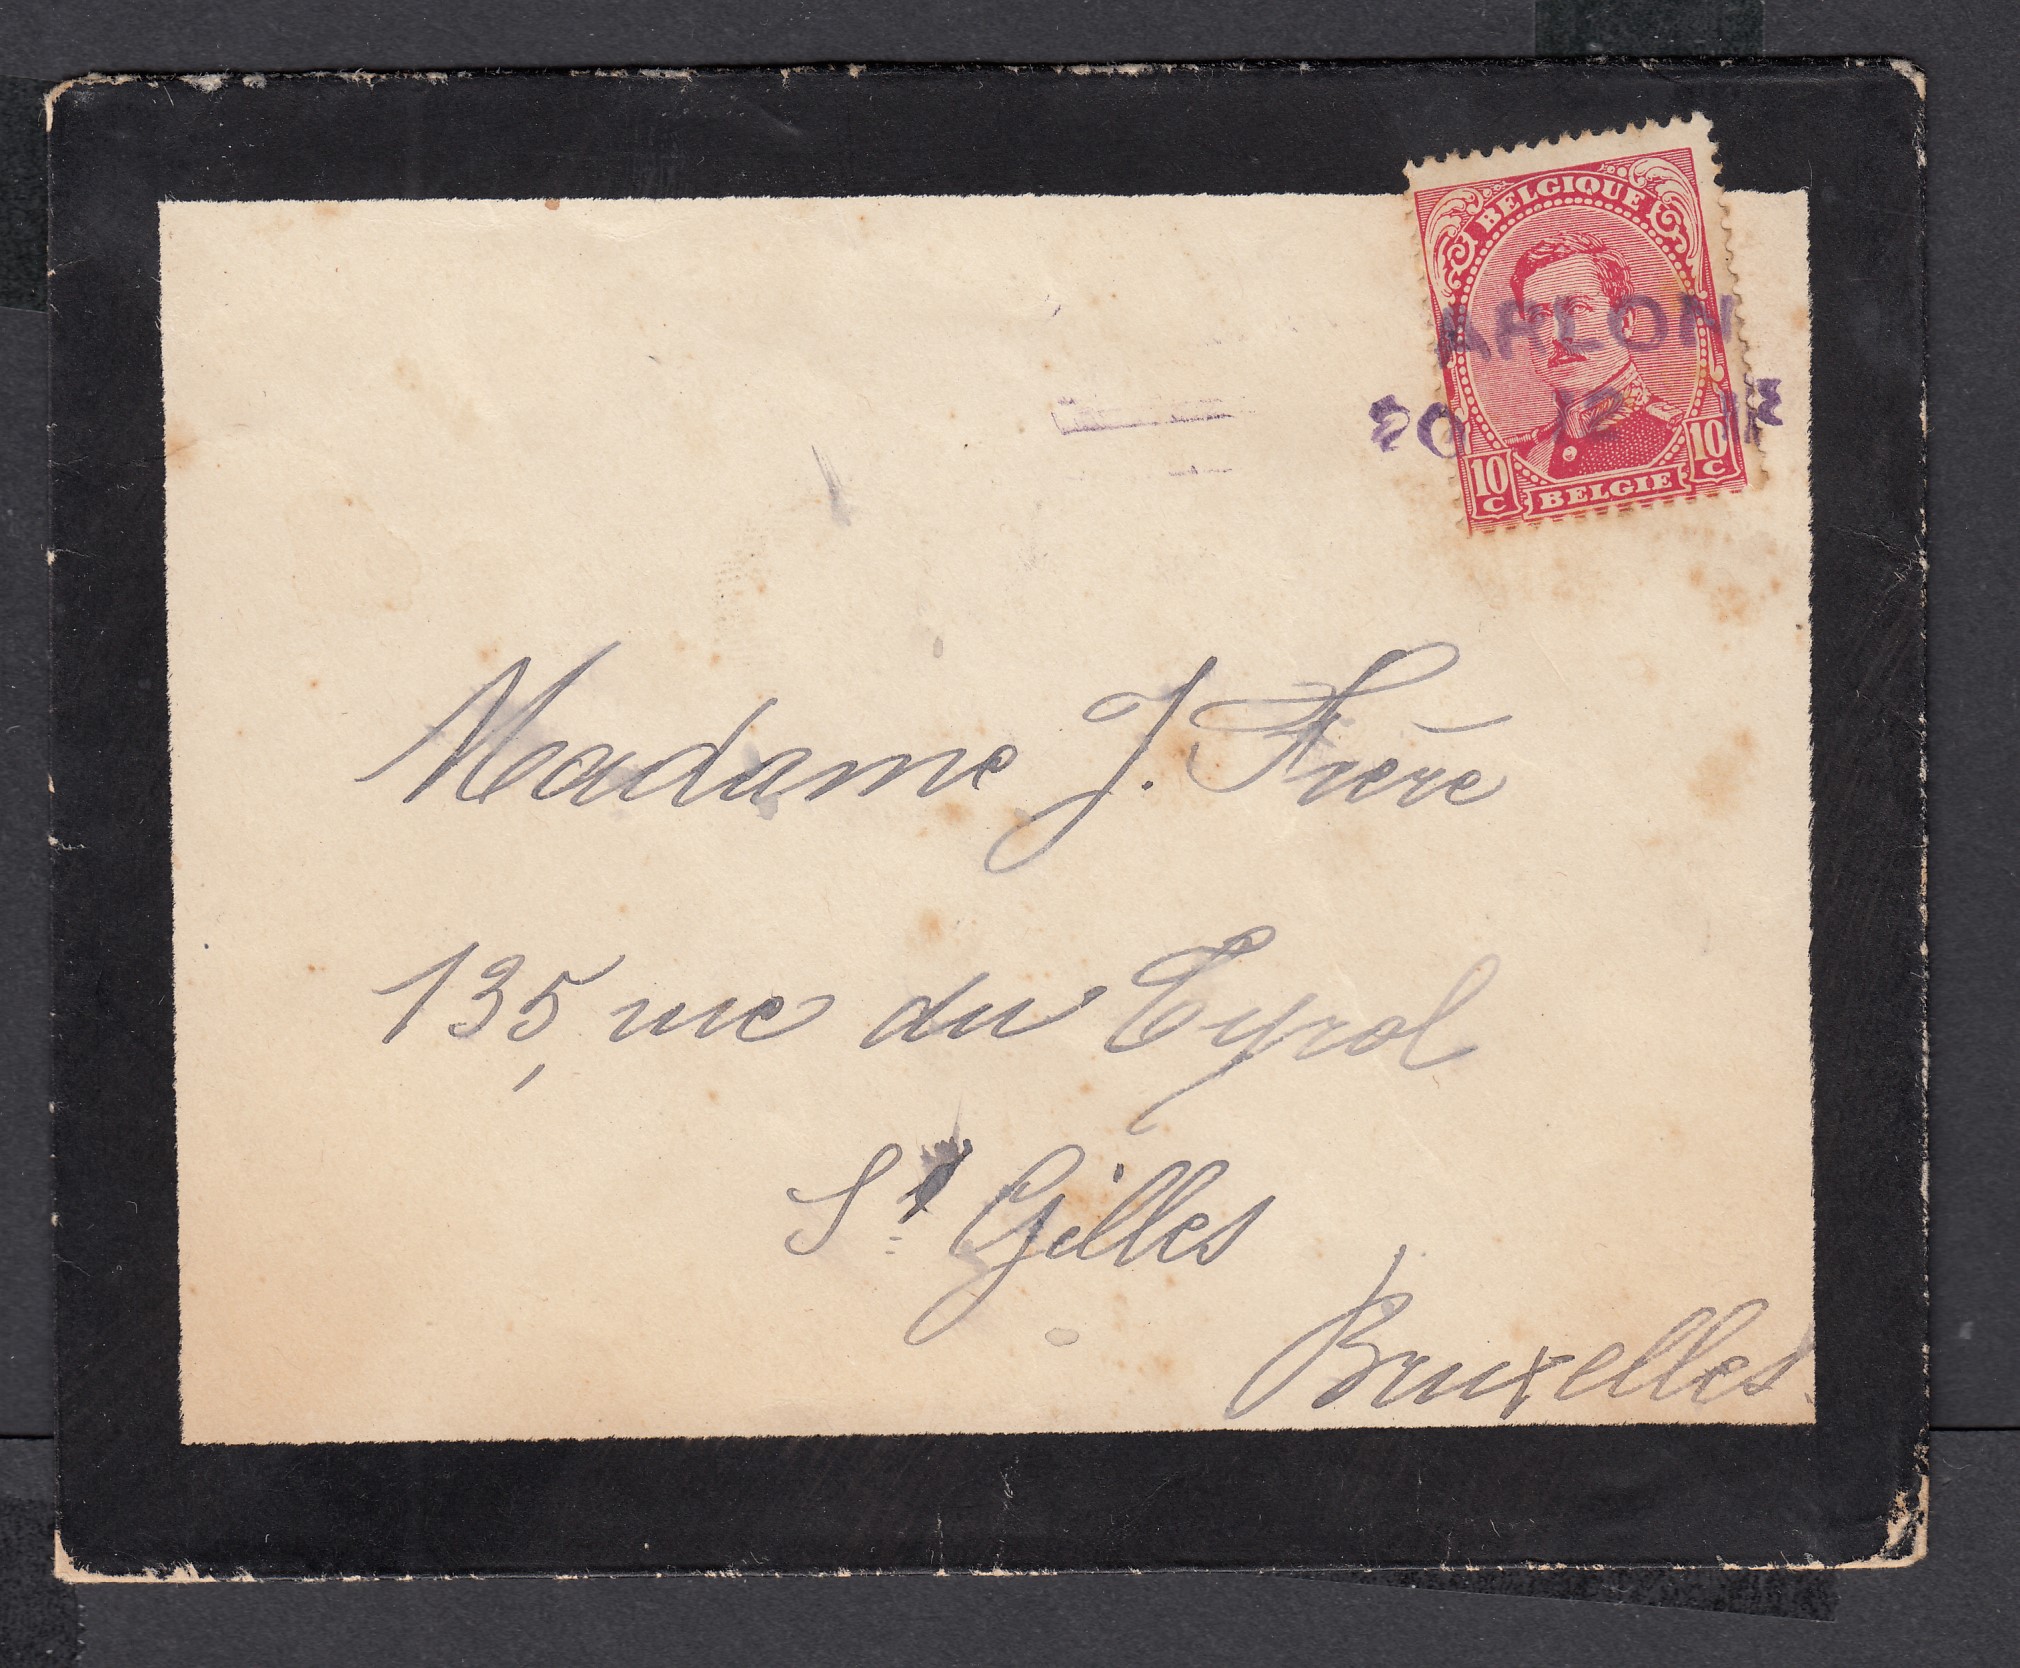 BELGIQUE
ARLON
20 12 18
10 C 10 C
BELGIE
Madame J. Frère
135, rue du Tyrol
St Gilles
Bruxelles